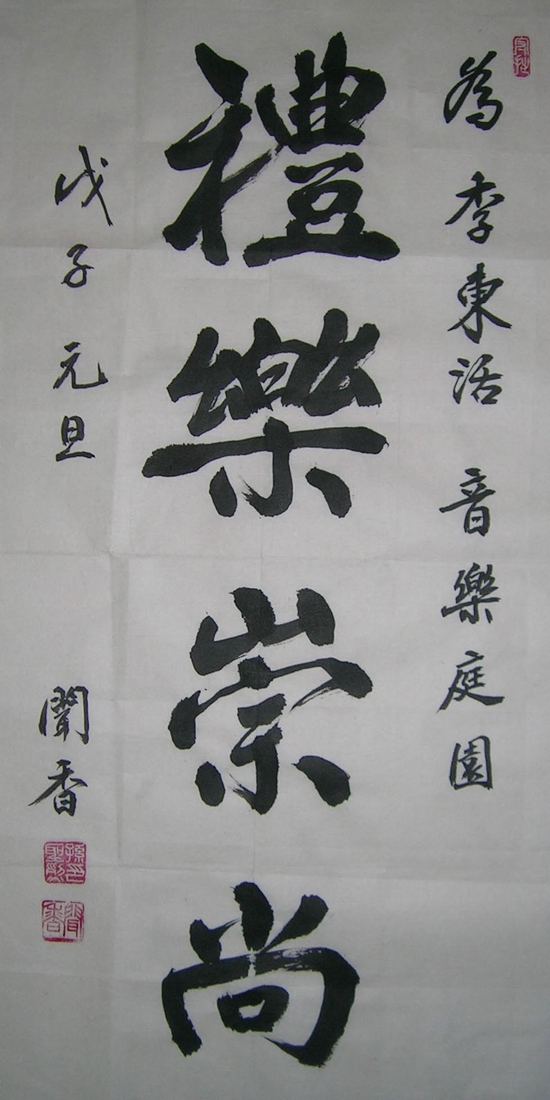 為 李東活 音樂庭園
禮樂崇尚
戊子 元旦
聞香